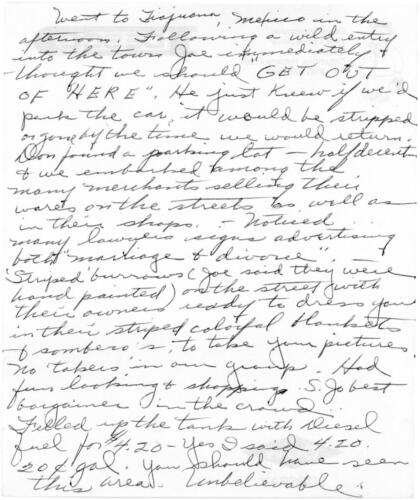 Went to Tiajuana, Mexico in the
afternoon. Following a wild entry
into the town Joe immediately
thought we should "GET OUT
OF HERE". He just knew if we'd
park the car, it would be stripped
or gone by the time we would return.
Don found a parking lot - half decent
& we embarked among the
many merchants selling their
wares on the streets as well as
in their shops. - Noticed
many lawyers signs advertising
both "marriage & divorce"
"Striped" burrows (Joe said they were
hand painted) on the street with
their owners ready to dress you
in their striped colorful blankets
& sombero's, to take your pictures.
No takers in our group. Had
fun looking & shopping. S. Jo best
bargainer in the crowd.
Filled up the tank with Diesel
fuel for $4.20 - Yes I said 4.20.
20¢ gal. You should have seen
this area. Unbelievable.